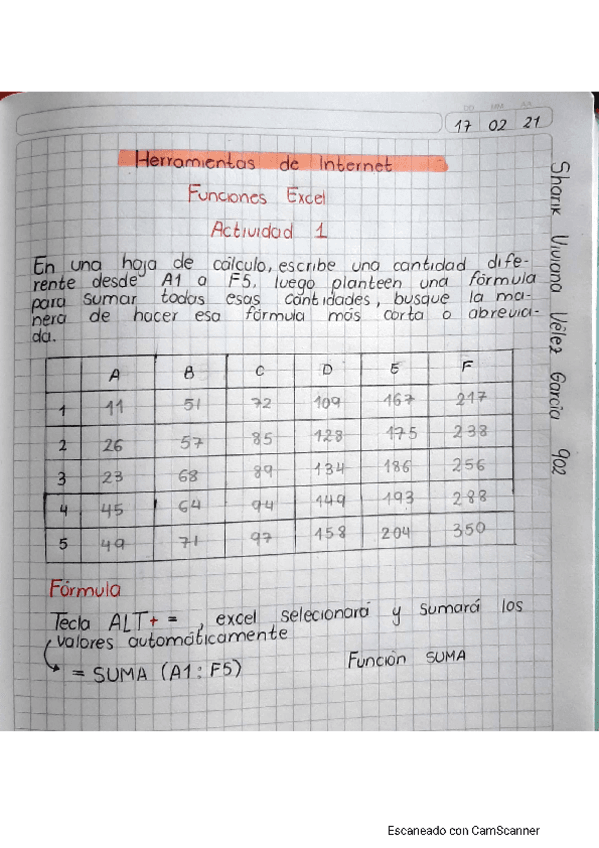 DD MM AA
17 02 21
Herramientas de Internet
Funciones Excel
Actividad 1
En una hoja de cálculo, escribe una cantidad dife-
rente desde A1 a F5, luego planteen una fórmula
para sumar todas esas cantidades, busque la ma-
nera de hacer esa fórmula más corta o abrevia-
da.
A B C D E F
1 11 51 72 109 167 217
2 26 57 85 128 175 238
3 23 68 89 134 186 256
4 45 64 94 149 193 288
5 49 71 97 158 204 350
Fórmula
Tecla ALT + = , excel selecionará y sumará los
valores automáticamente
= SUMA (A1:F5) Función SUMA
Sharik Viviana Vélez Garcia 902
Escaneado con CamScanner